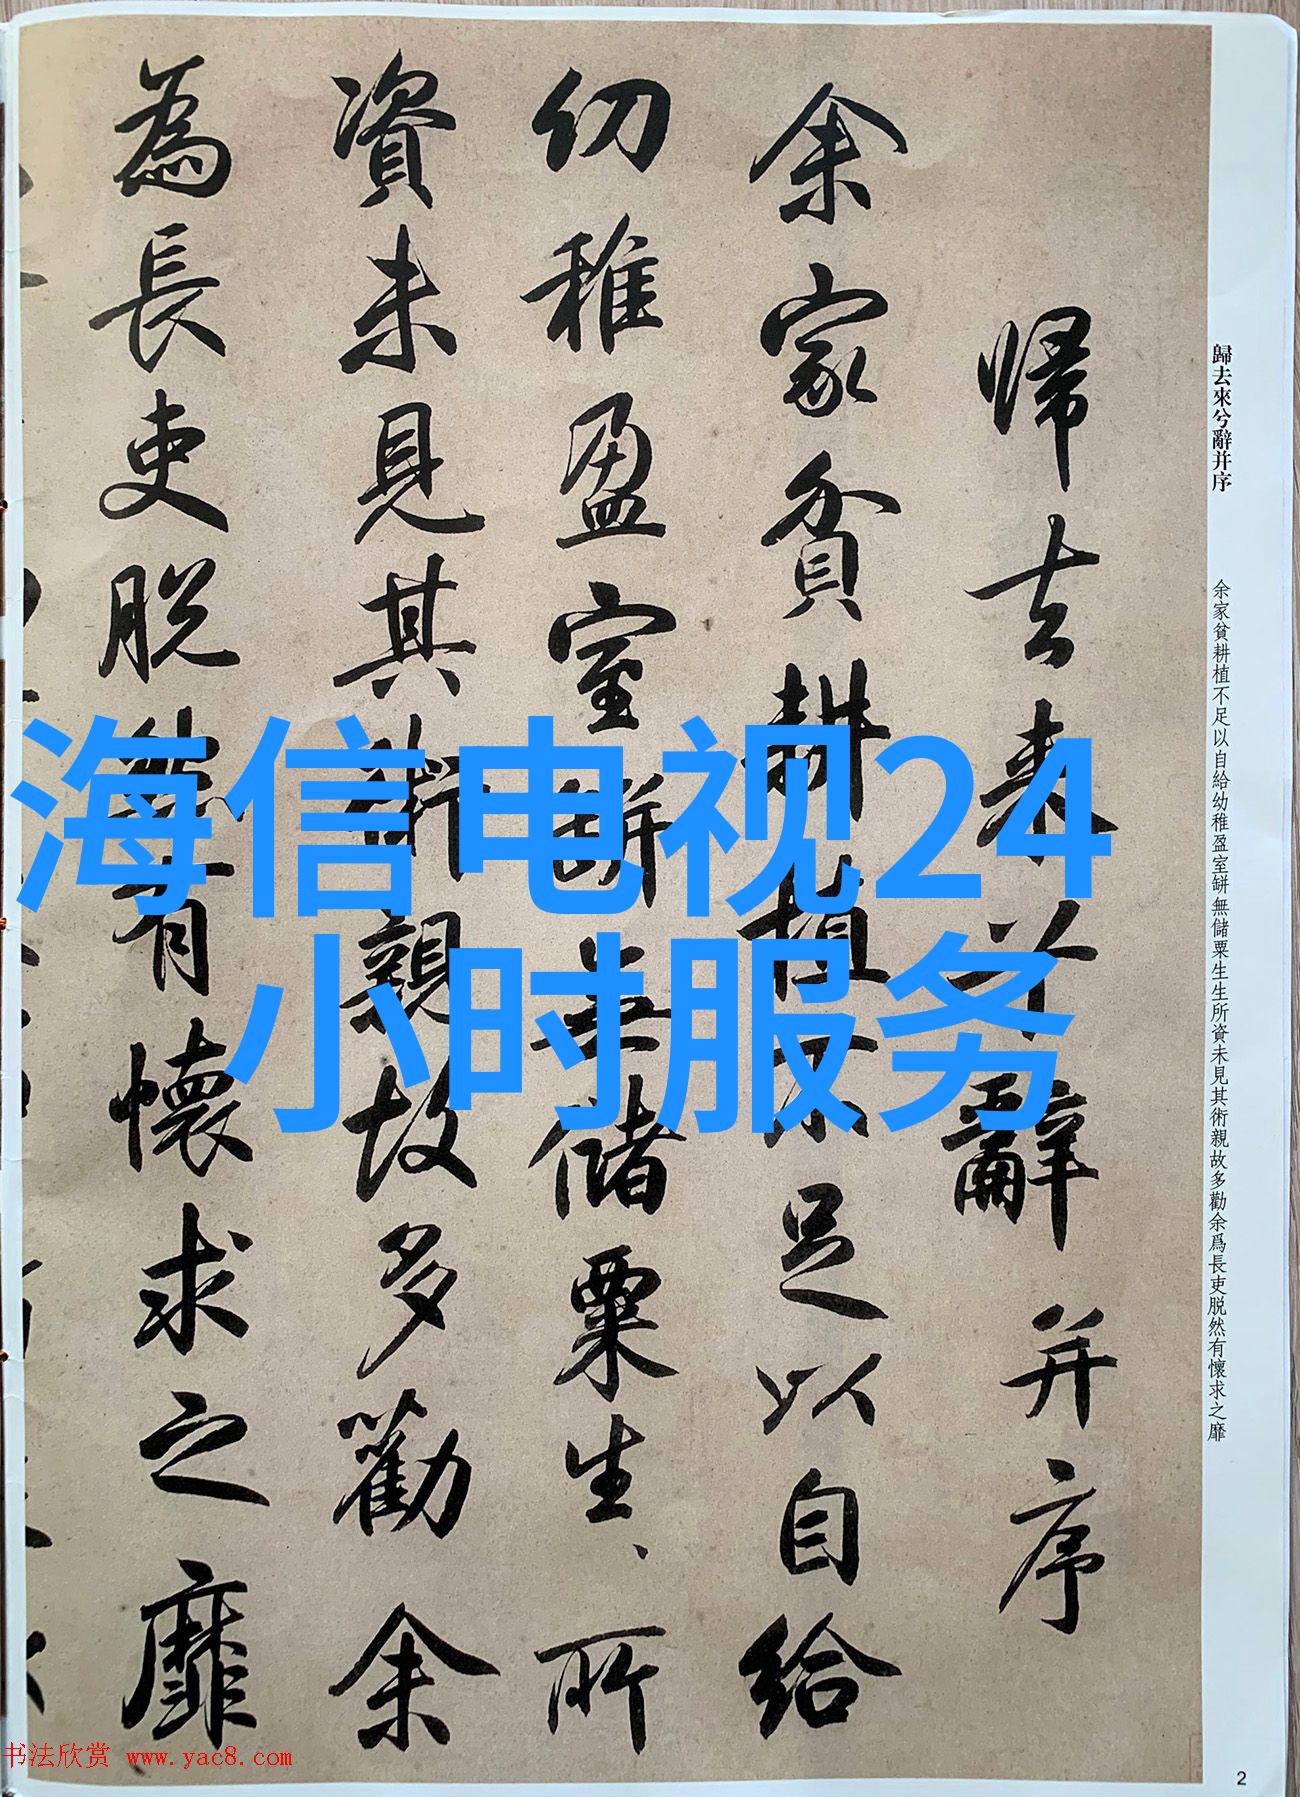 歸去來兮辭并序
余家貧耕植不足以自給幼稚盈室缾無儲粟生生所資未見其術親故多勸余爲長吏脱然有懷求之靡
歸去来兮辭并序
余家貧耕植不足以自給
幼稚盈室缾無儲粟生、所
資未見其術親故多勸余
為長吏脱然有懷求之靡
海信电视24
小时服务
书法欣赏 www.yac8.com
2